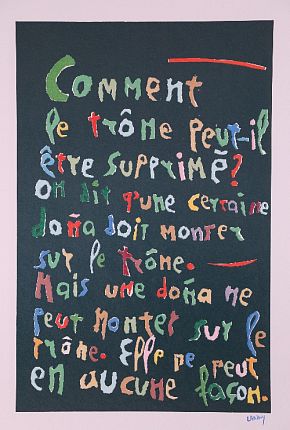 Comment
le trône peut-il
être supprimé?
On dit q'une certaine
doña doit monter
sur le trône. —
Mais une doña ne
peut monter sur le
trône. Elle ne peut
en aucune façon.